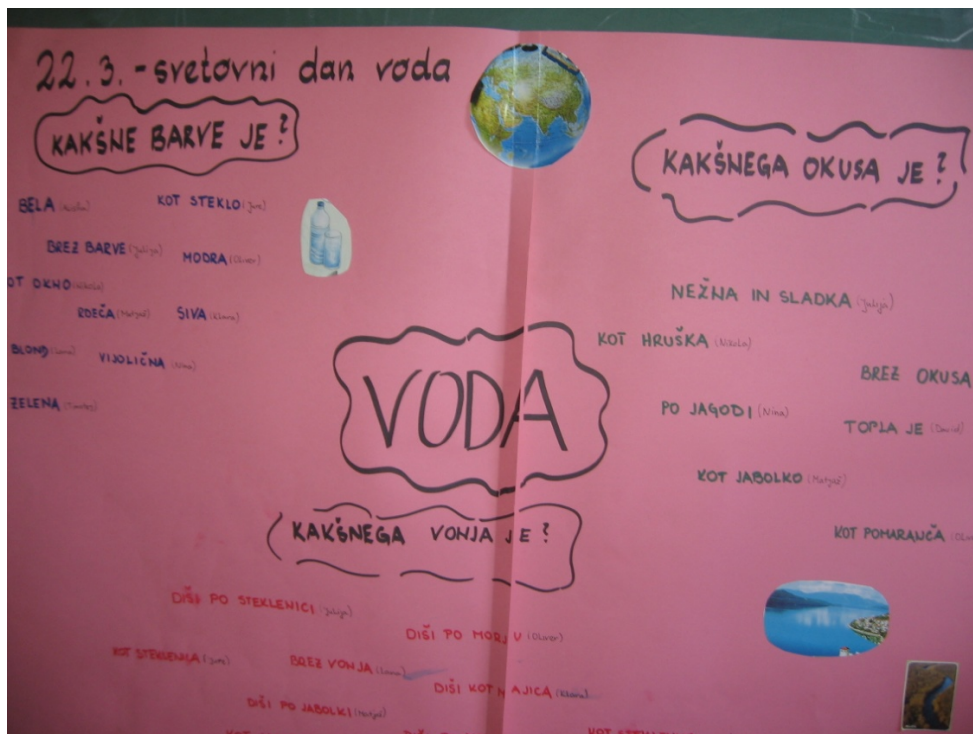 22.3.-svetovni dan voda
KAKŠNE BARVE JE?
BELA
KOT STEKLO (Jure)
BREZ BARVE (Julija)
MODRA (Oliver)
OT OKNO (Nikola)
RDEČA (Matjaž)
SIVA (Klara)
BLOND (Lana)
VIJOLIČNA (Nina)
ZELENA
KAKŠNEGA OKUSA JE?
NEŽNA IN SLADKA (Julija)
KOT HRUŠKA (Nikola)
BREZ OKUSA
PO JAGODI (Nina)
TOPLA JE (David)
KOT JABOLKO (Matjaž)
KOT POMARANČA
VODA
KAKŠNEGA VONJA JE?
DIŠI PO STEKLENICI (Julija)
DIŠI PO MORJU (Oliver)
KOT STEKLENICA (Jure)
BREZ VONJA (Lana)
DIŠI KOT MAJICA (Klara)
DIŠI PO JABOLKI (Matjaž)